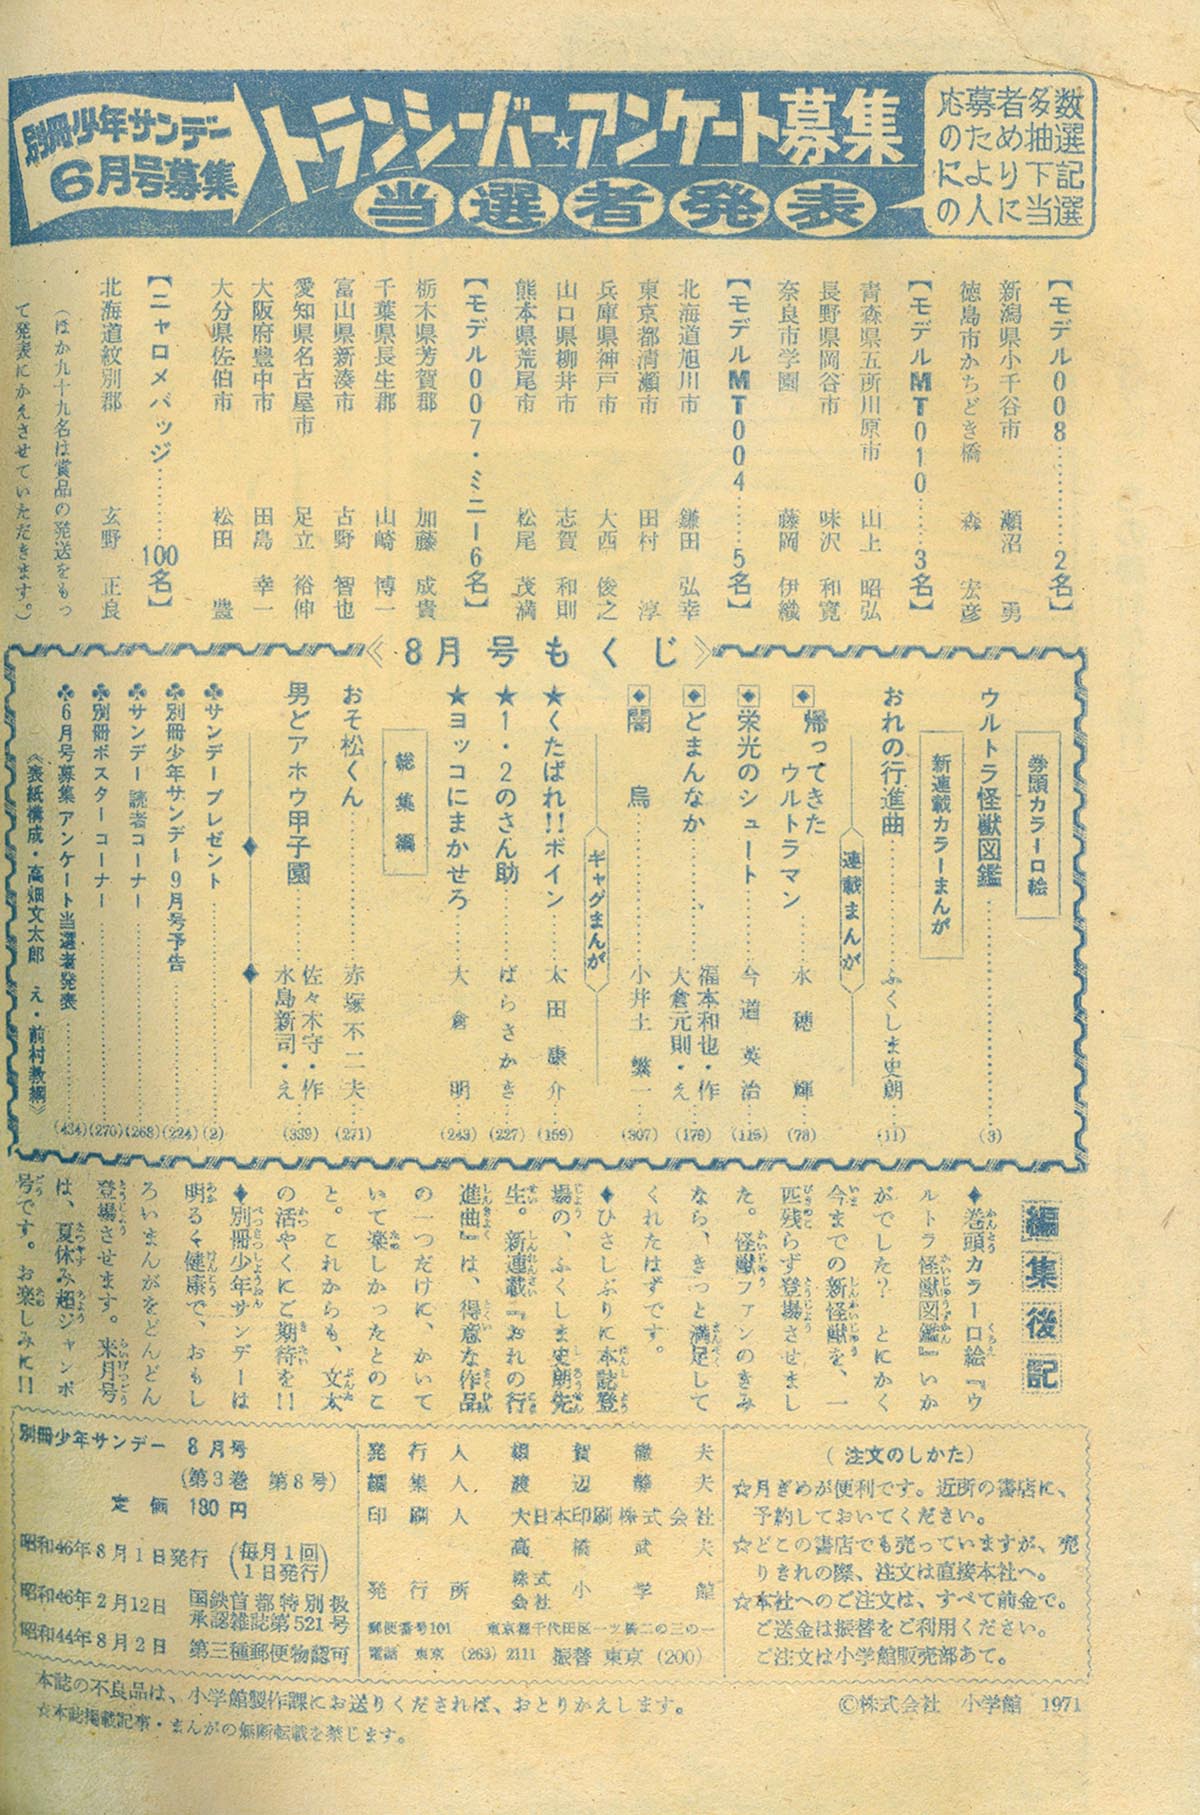 別冊少年サンデー
6月号募集
トランシーバー★アンケート募集
当選者発表
応募者多数
のため抽選
により下記
の人に当選
【モデル008……2名】
新潟県小千谷市 瀬沼 勇
徳島市かちどき橋 森 宏彦
【モデルMT010……3名】
青森県五所川原市 山上 昭弘
長野県岡谷市 味沢 和寛
奈良市学園 藤岡 伊織
【モデルMT004……5名】
北海道旭川市 鎌田 弘幸
東京都清瀬市 田村 淳
兵庫県神戸市 大西 俊之
山口県柳井市 志賀 和則
熊本県荒尾市 松尾 茂満
【モデル007・ミニー6名】
栃木県芳賀郡 加藤 成貴
千葉県長生郡 山崎 博一
富山県新湊市 古野 智也
愛知県名古屋市 足立 裕伸
大阪府豊中市 田島 幸一
大分県佐伯市 松田 豊
【ニャロメバッジ……100名】
北海道紋別郡 玄野 正良
(ほか九十九名は賞品の発送をもっ
て発表にかえさせていただきます。)
《8月号もくじ》
巻頭カラー口絵
ウルトラ怪獣図鑑……(3)
新連載カラーまんが
おれの行進曲……ふくしま史朗……(11)
連載まんが
帰ってきた
ウルトラマン……水穂 輝……(73)
栄光のシュート……今道英治……(115)
どまんなか……福本和也・作
大倉元則・え……(179)
闇 烏……小井土繁一……(307)
ギャグまんが
★くたばれ!!ボイン……太田康介……(159)
★1・2のさん助……ばらさかき……(227)
★ヨッコにまかせろ……大倉 明……(243)
総集編
おそ松くん……赤塚不二夫……(271)
男どアホウ甲子園……佐々木守・作
水島新司・え……(339)
♣サンデープレゼント……(2)
♣別冊少年サンデー9月号予告……(224)
♣サンデー読者コーナー……(268)
♣別冊ポスターコーナー……(270)
♣6月号募集アンケート当選者発表……(434)
《表紙構成・高畑文太郎 え・前村教綱》
編集後記
♦巻頭カラー口絵『ウ
ルトラ怪獣図鑑』いか
がでした? とにかく
今までの新怪獣を、一
匹残らず登場させまし
た。怪獣ファンのきみ
なら、きっと満足して
くれたはずです。
♦ひさしぶりに本誌登
場の、ふくしま史朗先
生。新連載『おれの行
進曲』は、得意な作品
の一つだけに、かいて
いて楽しかったとのこ
と。これからも、文太
の活やくにご期待を!!
♦別冊少年サンデーは
明るく健康で、おもし
ろいまんがをどんどん
登場させます。来月号
は、夏休み超ジャンボ
号です。お楽しみに!!
別冊少年サンデー 8月号
(第3巻 第8号)
定価 180円
昭和46年8月1日発行 (毎月1回 1日発行)
昭和46年2月12日 国鉄首都特別扱承認雑誌第521号
昭和44年8月2日 第三種郵便物認可
発行人 徹夫
編集人 渡辺静夫
印刷人 大日本印刷株式会社
高橋武夫
発行所 株式会社 小学館
郵便番号101 東京都千代田区一ツ橋二の三の一
電話 東京 (263) 2111 振替 東京 (200)
(注文のしかた)
☆月ぎめが便利です。近所の書店に、
予約しておいてください。
☆どこの書店でも売っていますが、売
りきれの際、注文は直接本社へ。
☆本社へのご注文は、すべて前金で。
ご送金は振替をご利用ください。
ご注文は小学館販売部あて。
本誌の不良品は、小学館製作課にお送りくだされば、おとりかえします。
☆本誌掲載記事・まんがの無断転載を禁じます。
©株式会社 小学館 1971